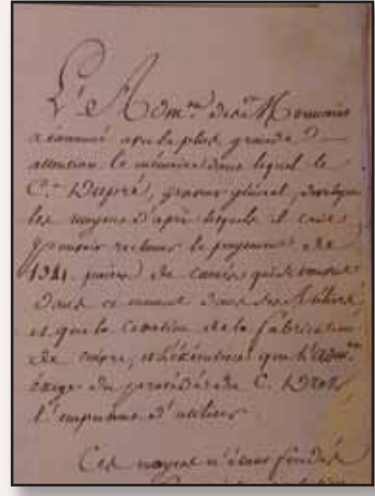 L'Adm.on des Monnaies
a examiné avec la plus grande
attention le mémoire dans lequel le
C.en Dupré, graveur général, développe
les moyens d'après lesquels il croit
pouvoir réclamer le payement de
1321 paires de carrés qui se trouvent
dans ce moment dans ses Atteliers
et que la cessation de la fabrication
de cuivre, et l'exécution que l'adm.on
exige du procédé du C. Droz,
l'empêchent d'utiliser.
Ces moyens n'étant fondés